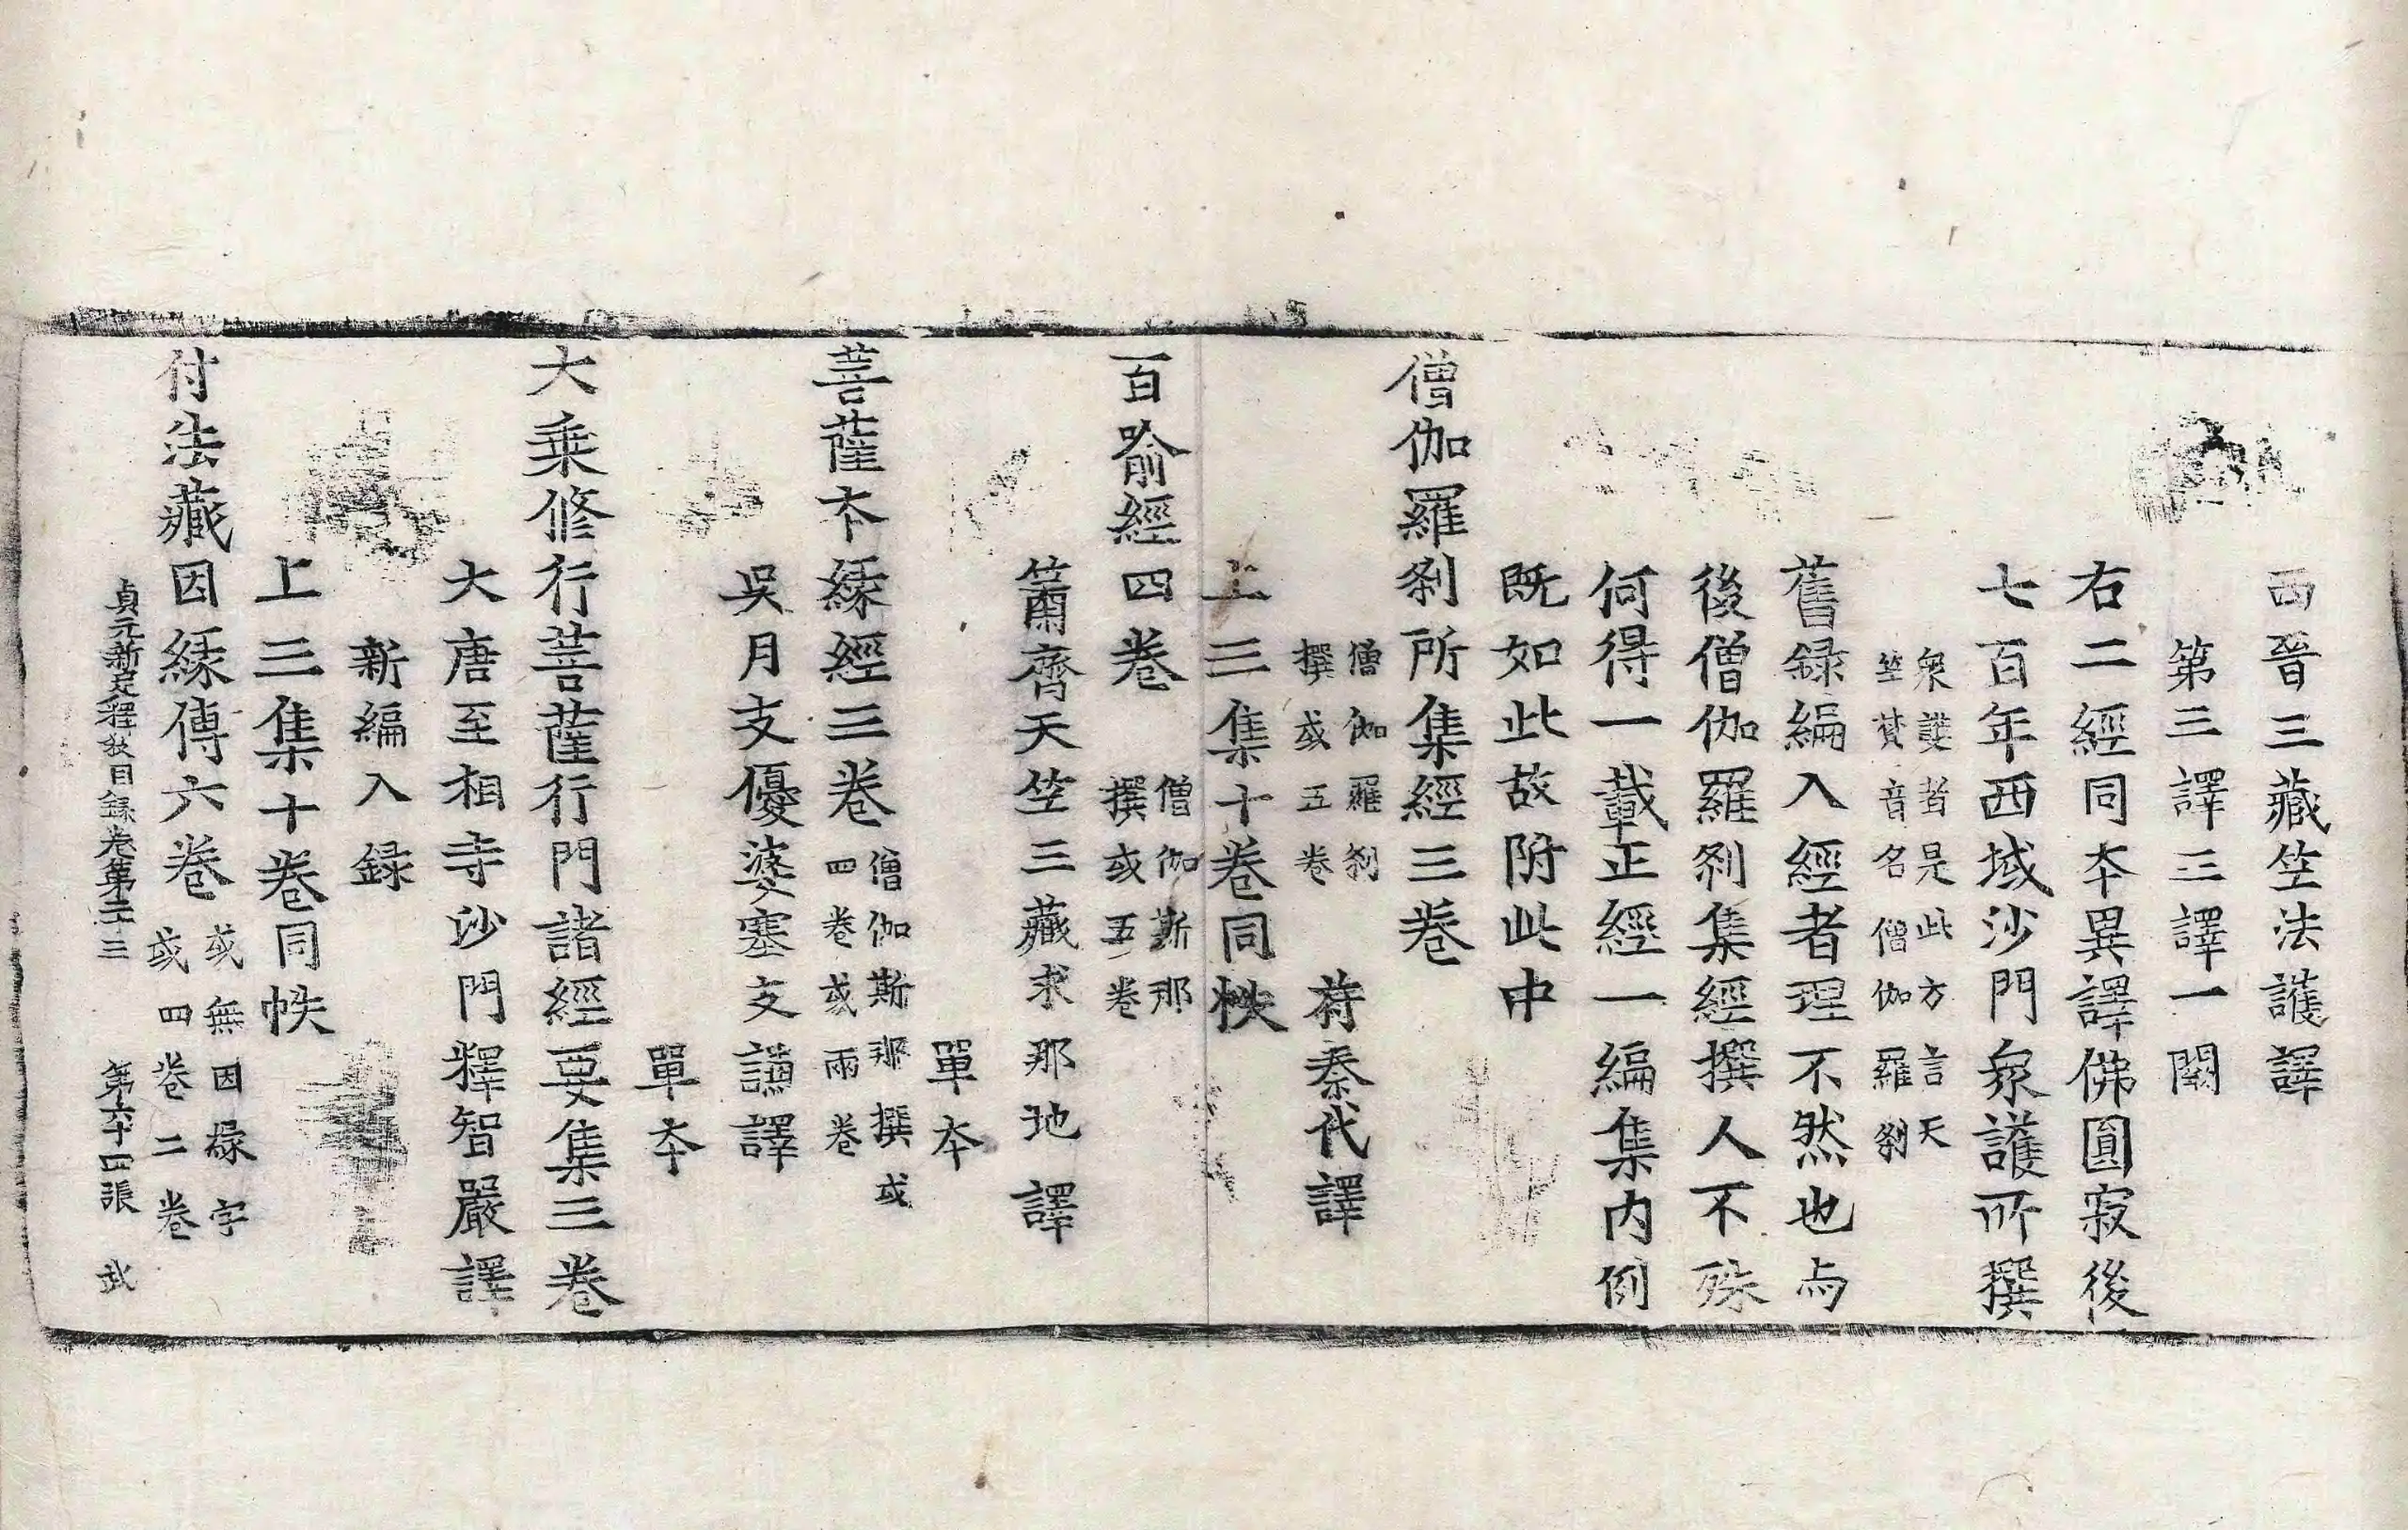 西晉三藏竺法護譯
第三譯三譯一闕
右二經同本異譯佛圓寂後
七百年西域沙門衆護所撰
衆護者是此方言天
竺梵音名僧伽羅刹
舊録編入經者理不然也与
後僧伽羅刹集經撰人不殊
何得一載正經一編集内例
既如此故附此中
僧伽羅刹所集經三卷
僧伽羅刹
撰或五卷
苻秦代譯
上三集十卷同帙
百喻經四卷
僧伽斯那
撰或五卷
簫齊天竺三藏求那地譯
單本
菩薩本縁經三卷
僧伽斯那撰或
四卷或兩卷
吳月支優婆塞支謙譯
單本
大乗修行菩薩行門諸經要集三卷
大唐至相寺沙門釋智嚴譯
新編入録
上三集十卷同帙
付法藏因縁傳六卷
或無因縁字
或四卷二卷
貞元新定釋教目録卷第二十三 第六十四張 武